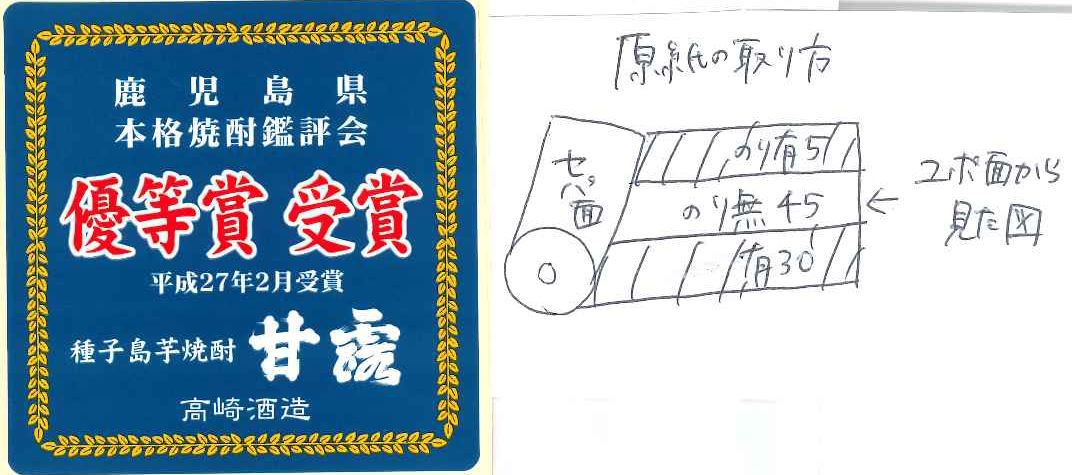 鹿児島県
本格焼酎鑑評会
優等賞 受賞
平成27年2月受賞
種子島芋焼酎 甘露
高崎酒造
原紙の取り方
セパ面
のり有5
のり無45
有30
ユポ面から
見た図